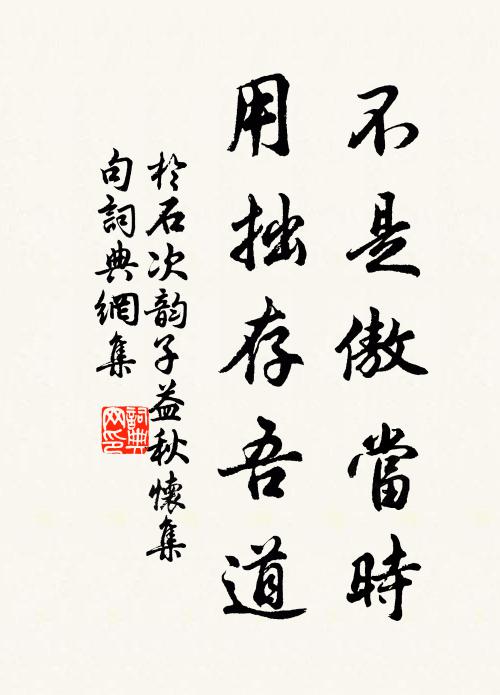 不是傲當時
用拙存吾道
於石次韵子益秋懷集
句詞典網集
詞典网印